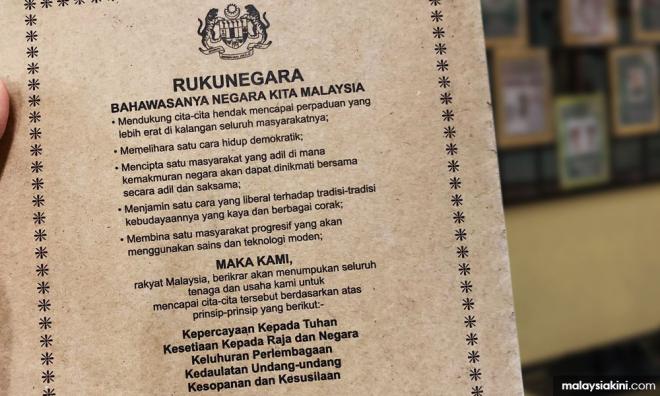 RUKUNEGARA
BAHAWASANYA NEGARA KITA MALAYSIA
• Mendukung cita-cita hendak mencapai perpaduan yang
lebih erat di kalangan seluruh masyarakatnya;
• Memelihara satu cara hidup demokratik;
• Mencipta satu masyarakat yang adil di mana
kemakmuran negara akan dapat dinikmati bersama
secara adil dan saksama;
• Menjamin satu cara yang liberal terhadap tradisi-tradisi
kebudayaannya yang kaya dan berbagai corak;
• Membina satu masyarakat progresif yang akan
menggunakan sains dan teknologi moden;
MAKA KAMI,
rakyat Malaysia, berikrar akan menumpukan seluruh
tenaga dan usaha kami untuk
mencapai cita-cita tersebut berdasarkan atas
prinsip-prinsip yang berikut:-
Kepercayaan Kepada Tuhan
Kesetiaan Kepada Raja dan Negara
Keluhuran Perlembagaan
Kedaulatan Undang-undang
Kesopanan dan Kesusilaan
malaysiakini.com